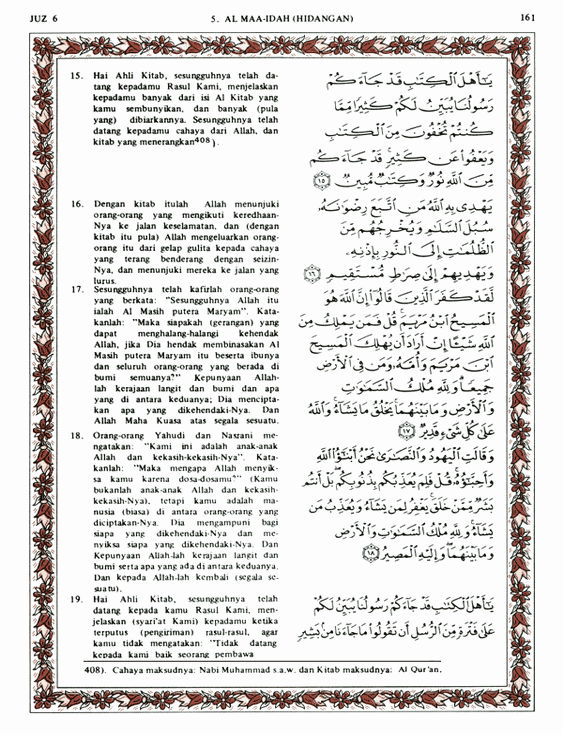 JUZ 6 5. AL MAA-IDAH (HIDANGAN) 161
15. Hai Ahli Kitab, sesungguhnya telah da-
tang kepadamu Rasul Kami, menjelaskan
kepadamu banyak dari isi Al Kitab yang
kamu sembunyikan, dan banyak (pula
yang) dibiarkannya. Sesungguhnya telah
datang kepadamu cahaya dari Allah, dan
kitab yang menerangkan408).
16. Dengan kitab itulah Allah menunjuki
orang-orang yang mengikuti keredhaan-
Nya ke jalan keselamatan, dan (dengan
kitab itu pula) Allah mengeluarkan orang-
orang itu dari gelap gulita kepada cahaya
yang terang benderang dengan seizin-
Nya, dan menunjuki mereka ke jalan yang
lurus.
17. Sesungguhnya telah kafirlah orang-orang
yang berkata: "Sesungguhnya Allah itu
ialah Al Masih putera Maryam". Kata-
kanlah: "Maka siapakah (gerangan) yang
dapat menghalang-halangi kehendak
Allah, jika Dia hendak membinasakan Al
Masih putera Maryam itu beserta ibunya
dan seluruh orang-orang yang berada di
bumi semuanya?" Kepunyaan Allah-
lah kerajaan langit dan bumi dan apa
yang di antara keduanya; Dia mencipta-
kan apa yang dikehendaki-Nya. Dan
Allah Maha Kuasa atas segala sesuatu.
18. Orang-orang Yahudi dan Nasrani me-
ngatakan: "Kami ini adalah anak-anak
Allah dan kekasih-kekasih-Nya". Kata-
kanlah: "Maka mengapa Allah menyik-
sa kamu karena dosa-dosamu?" (Kamu
bukanlah anak-anak Allah dan kekasih-
kekasih-Nya), tetapi kamu adalah ma-
nusia (biasa) di antara orang-orang yang
diciptakan-Nya. Dia mengampuni bagi
siapa yang dikehendaki-Nya dan me-
nyiksa siapa yang dikehendaki-Nya. Dan
Kepunyaan Allah-lah kerajaan langit dan
bumi serta apa yang ada di antara keduanya.
Dan kepada Allah-lah kembali (segala se-
suatu).
19. Hai Ahli Kitab, sesungguhnya telah
datang kepada kamu Rasul Kami, men-
jelaskan (syari'at Kami) kepadamu ketika
terputus (pengiriman) rasul-rasul, agar
kamu tidak mengatakan: "Tidak datang
kepada kami baik seorang pembawa
يَٰٓأَهْلَ ٱلْكِتَٰبِ قَدْ جَآءَكُمْ
رَسُولُنَا يُبَيِّنُ لَكُمْ كَثِيرًا مِّمَّا
كُنتُمْ تُخْفُونَ مِنَ ٱلْكِتَٰبِ
وَيَعْفُوا۟ عَن كَثِيرٍ ۚ قَدْ جَآءَكُم
مِّنَ ٱللَّهِ نُورٌ وَكِتَٰبٌ مُّبِينٌ ١٥
يَهْدِى بِهِ ٱللَّهُ مَنِ ٱتَّبَعَ رِضْوَٰنَهُۥ
سُبُلَ ٱلسَّلَٰمِ وَيُخْرِجُهُم مِّنَ
ٱلظُّلُمَٰتِ إِلَى ٱلنُّورِ بِإِذْنِهِۦ
وَيَهْدِيهِمْ إِلَىٰ صِرَٰطٍ مُّسْتَقِيمٍ ١٦
لَّقَدْ كَفَرَ ٱلَّذِينَ قَالُوٓا۟ إِنَّ ٱللَّهَ هُوَ
ٱلْمَسِيحُ ٱبْنُ مَرْيَمَ ۚ قُلْ فَمَن يَمْلِكُ مِنَ
ٱللَّهِ شَيْـًٔا إِنْ أَرَادَ أَن يُهْلِكَ ٱلْمَسِيحَ
ٱبْنَ مَرْيَمَ وَأُمَّهُۥ وَمَن فِى ٱلْأَرْضِ
جَمِيعًا ۗ وَلِلَّهِ مُلْكُ ٱلسَّمَٰوَٰتِ
وَٱلْأَرْضِ وَمَا بَيْنَهُمَا ۚ يَخْلُقُ مَا يَشَآءُ ۚ وَٱللَّهُ
عَلَىٰ كُلِّ شَىْءٍ قَدِيرٌ ١٧
وَقَالَتِ ٱلْيَهُودُ وَٱلنَّصَٰرَىٰ نَحْنُ أَبْنَٰٓؤُا۟ ٱللَّهِ
وَأَحِبَّٰٓؤُهُۥ ۚ قُلْ فَلِمَ يُعَذِّبُكُم بِذُنُوبِكُم ۖ بَلْ أَنتُم
بَشَرٌ مِّمَّنْ خَلَقَ ۚ يَغْفِرُ لِمَن يَشَآءُ وَيُعَذِّبُ مَن
يَشَآءُ ۚ وَلِلَّهِ مُلْكُ ٱلسَّمَٰوَٰتِ وَٱلْأَرْضِ
وَمَا بَيْنَهُمَا ۖ وَإِلَيْهِ ٱلْمَصِيرُ ١٨
يَٰٓأَهْلَ ٱلْكِتَٰبِ قَدْ جَآءَكُمْ رَسُولُنَا يُبَيِّنُ لَكُمْ
عَلَىٰ فَتْرَةٍ مِّنَ ٱلرُّسُلِ أَن تَقُولُوا۟ مَا جَآءَنَا مِنۢ بَشِيرٍ
408). Cahaya maksudnya: Nabi Muhammad s.a.w. dan Kitab maksudnya: Al Qur'an.